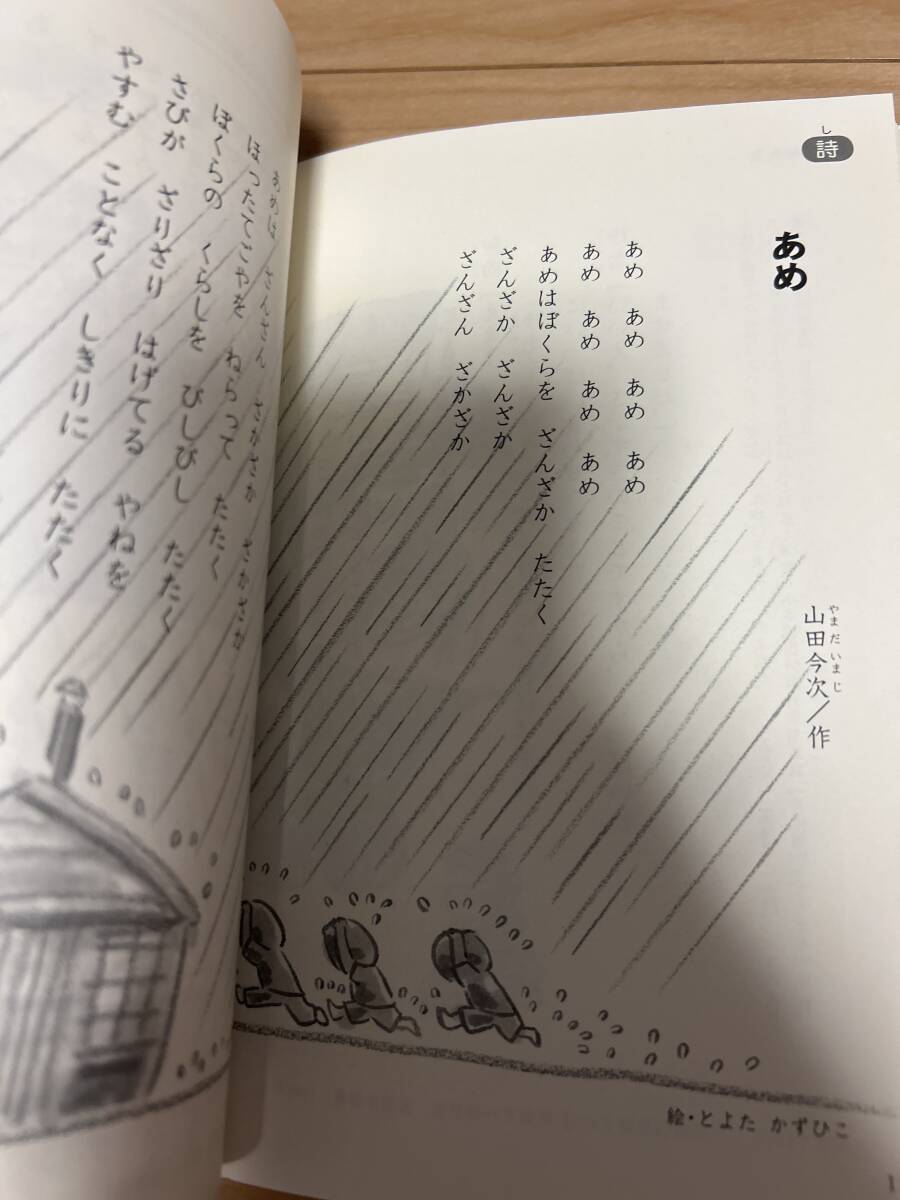 し
詩
あめ
やまだいまじ
山田今次/作
あめ あめ あめ あめ
あめ あめ あめ あめ
あめはぼくらを ざんざか たたく
ざんざか ざんざか
ざんざん ざかざか
絵・とよた かずひこ
あめは ざんざん ざかざか ざかざか
ほったてごやを ねらって たたく
ぼくらの くらしを びしびし たたく
さびが ざりざり はげてる やねを
やすむ ことなく しきりに たたく